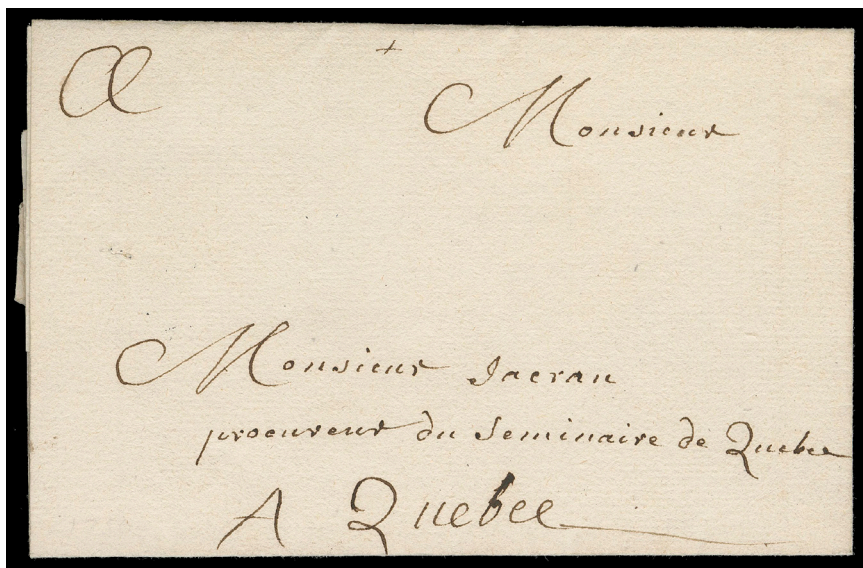 Monsieur
Monsieur Jacrau
procureur du Seminaire de Quebec
A Quebec